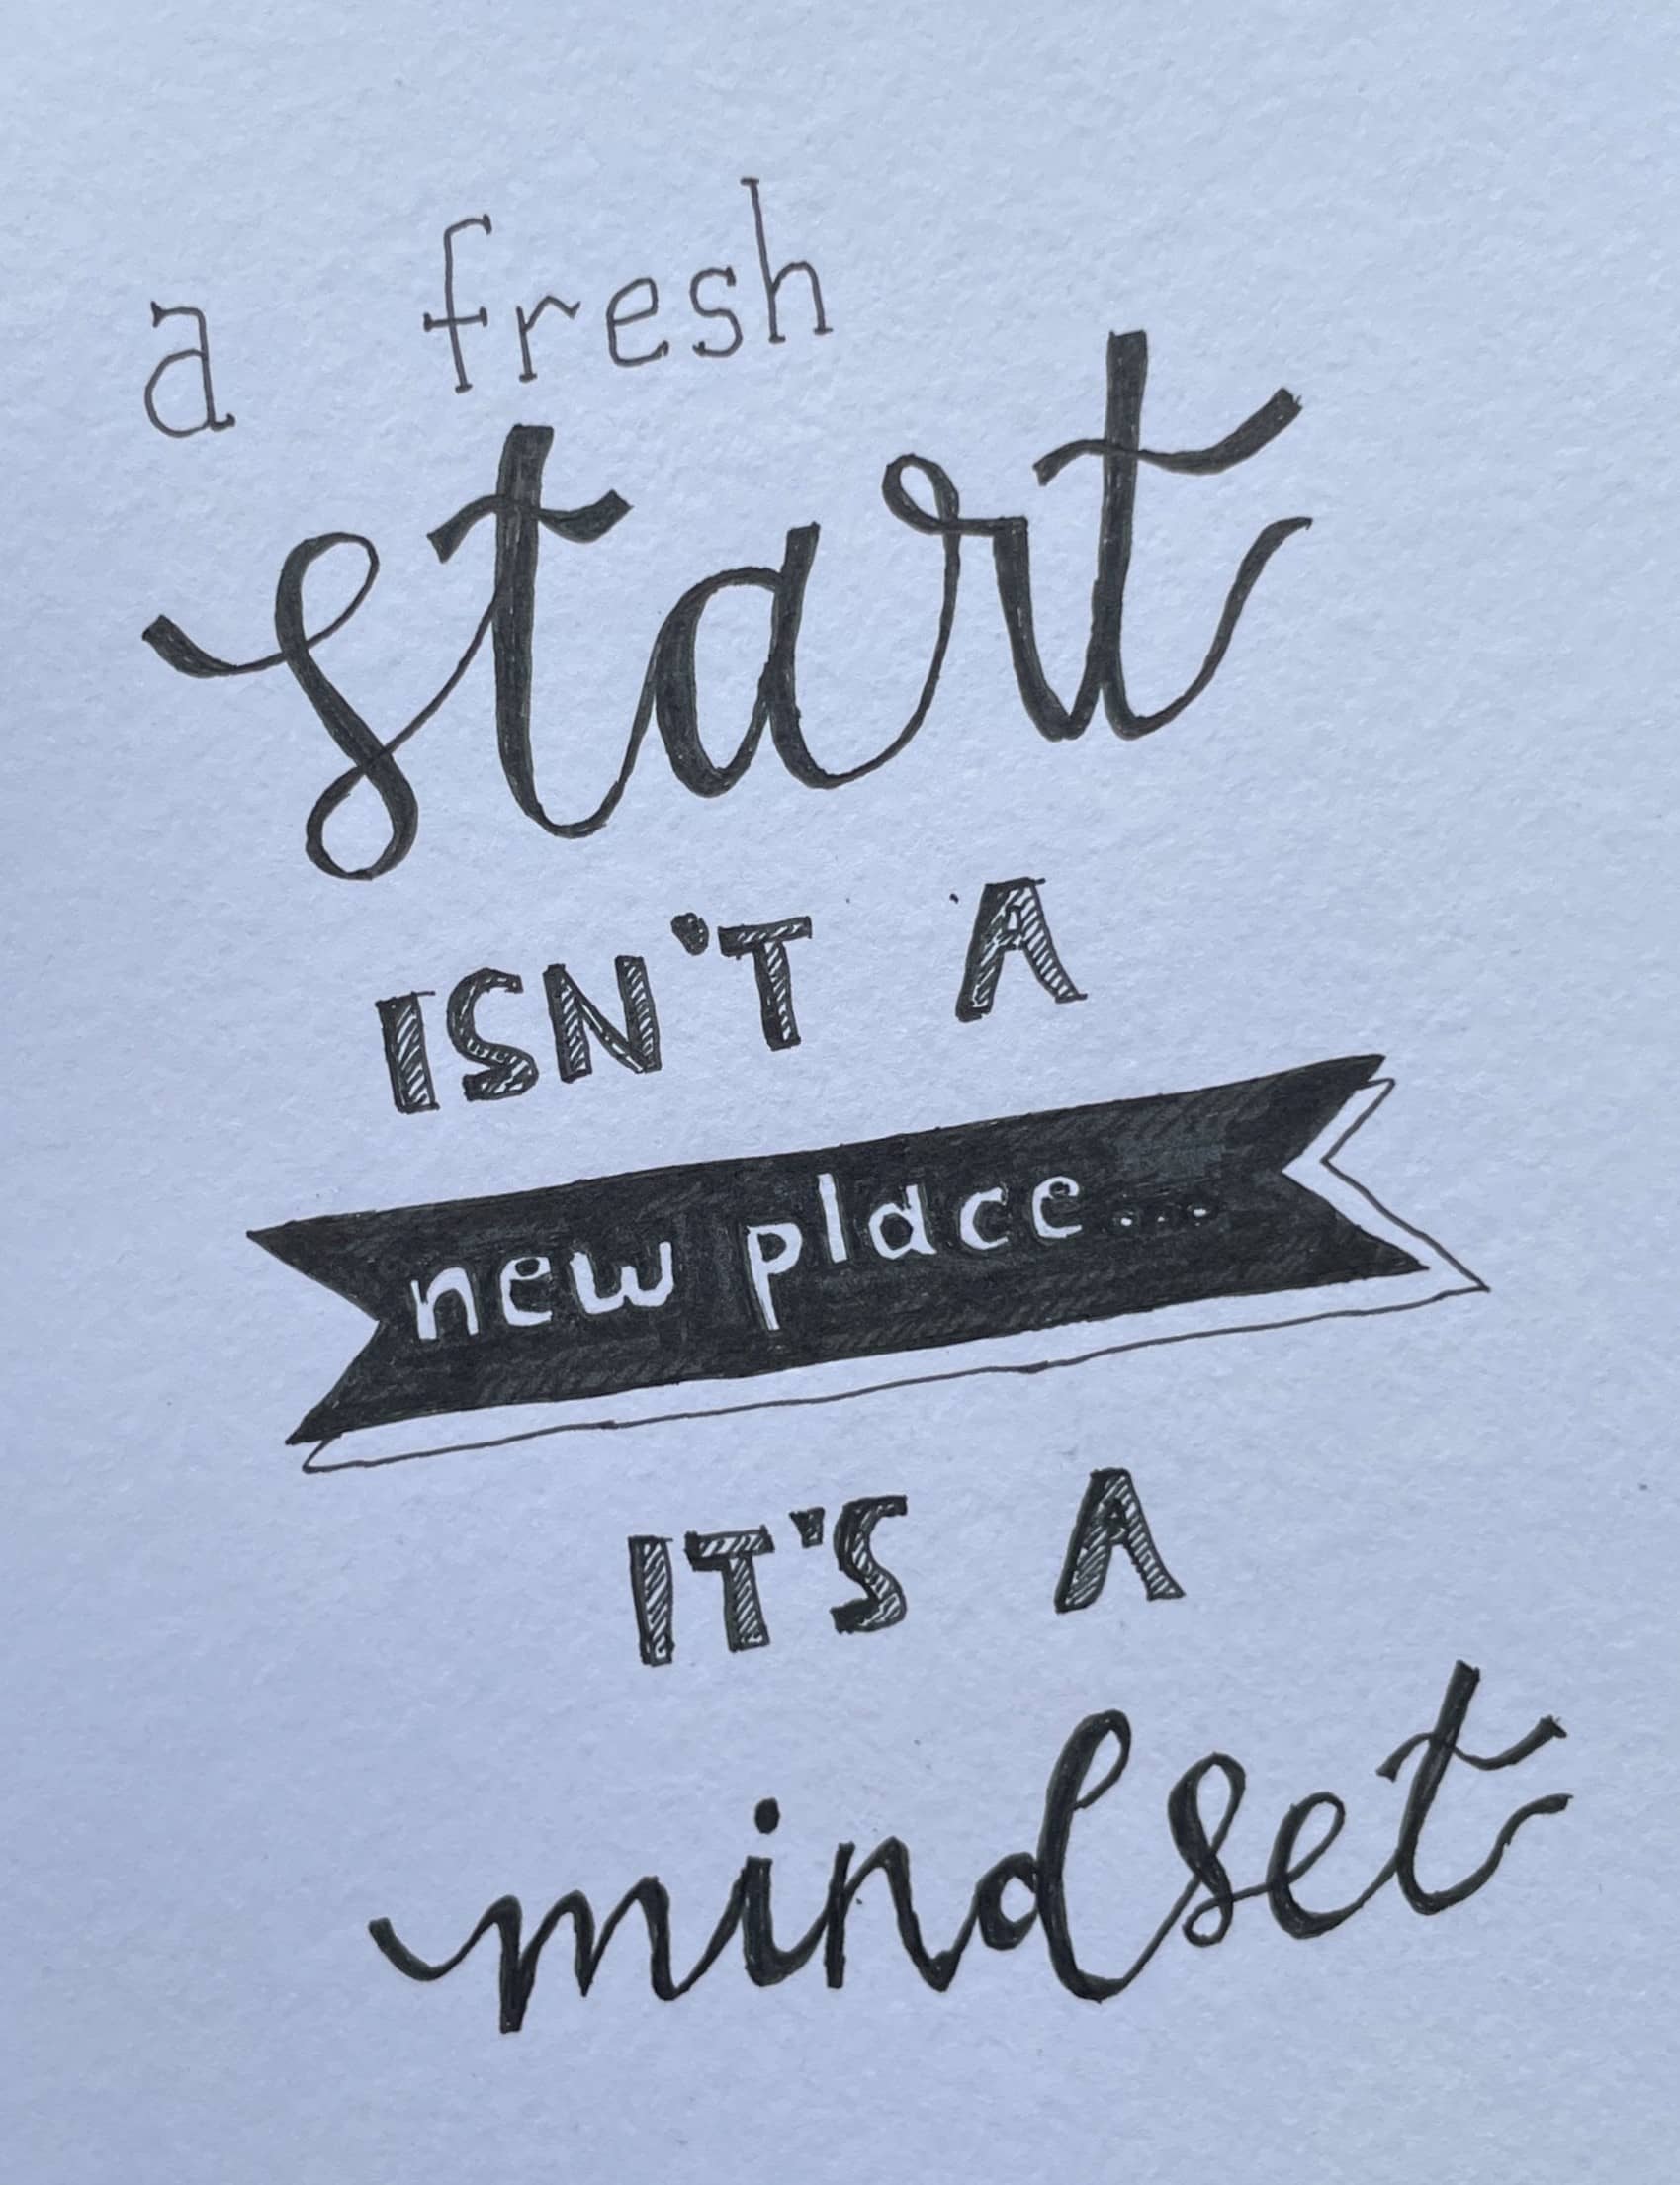 a fresh
start
ISN'T A
new place...
IT'S A
mindset